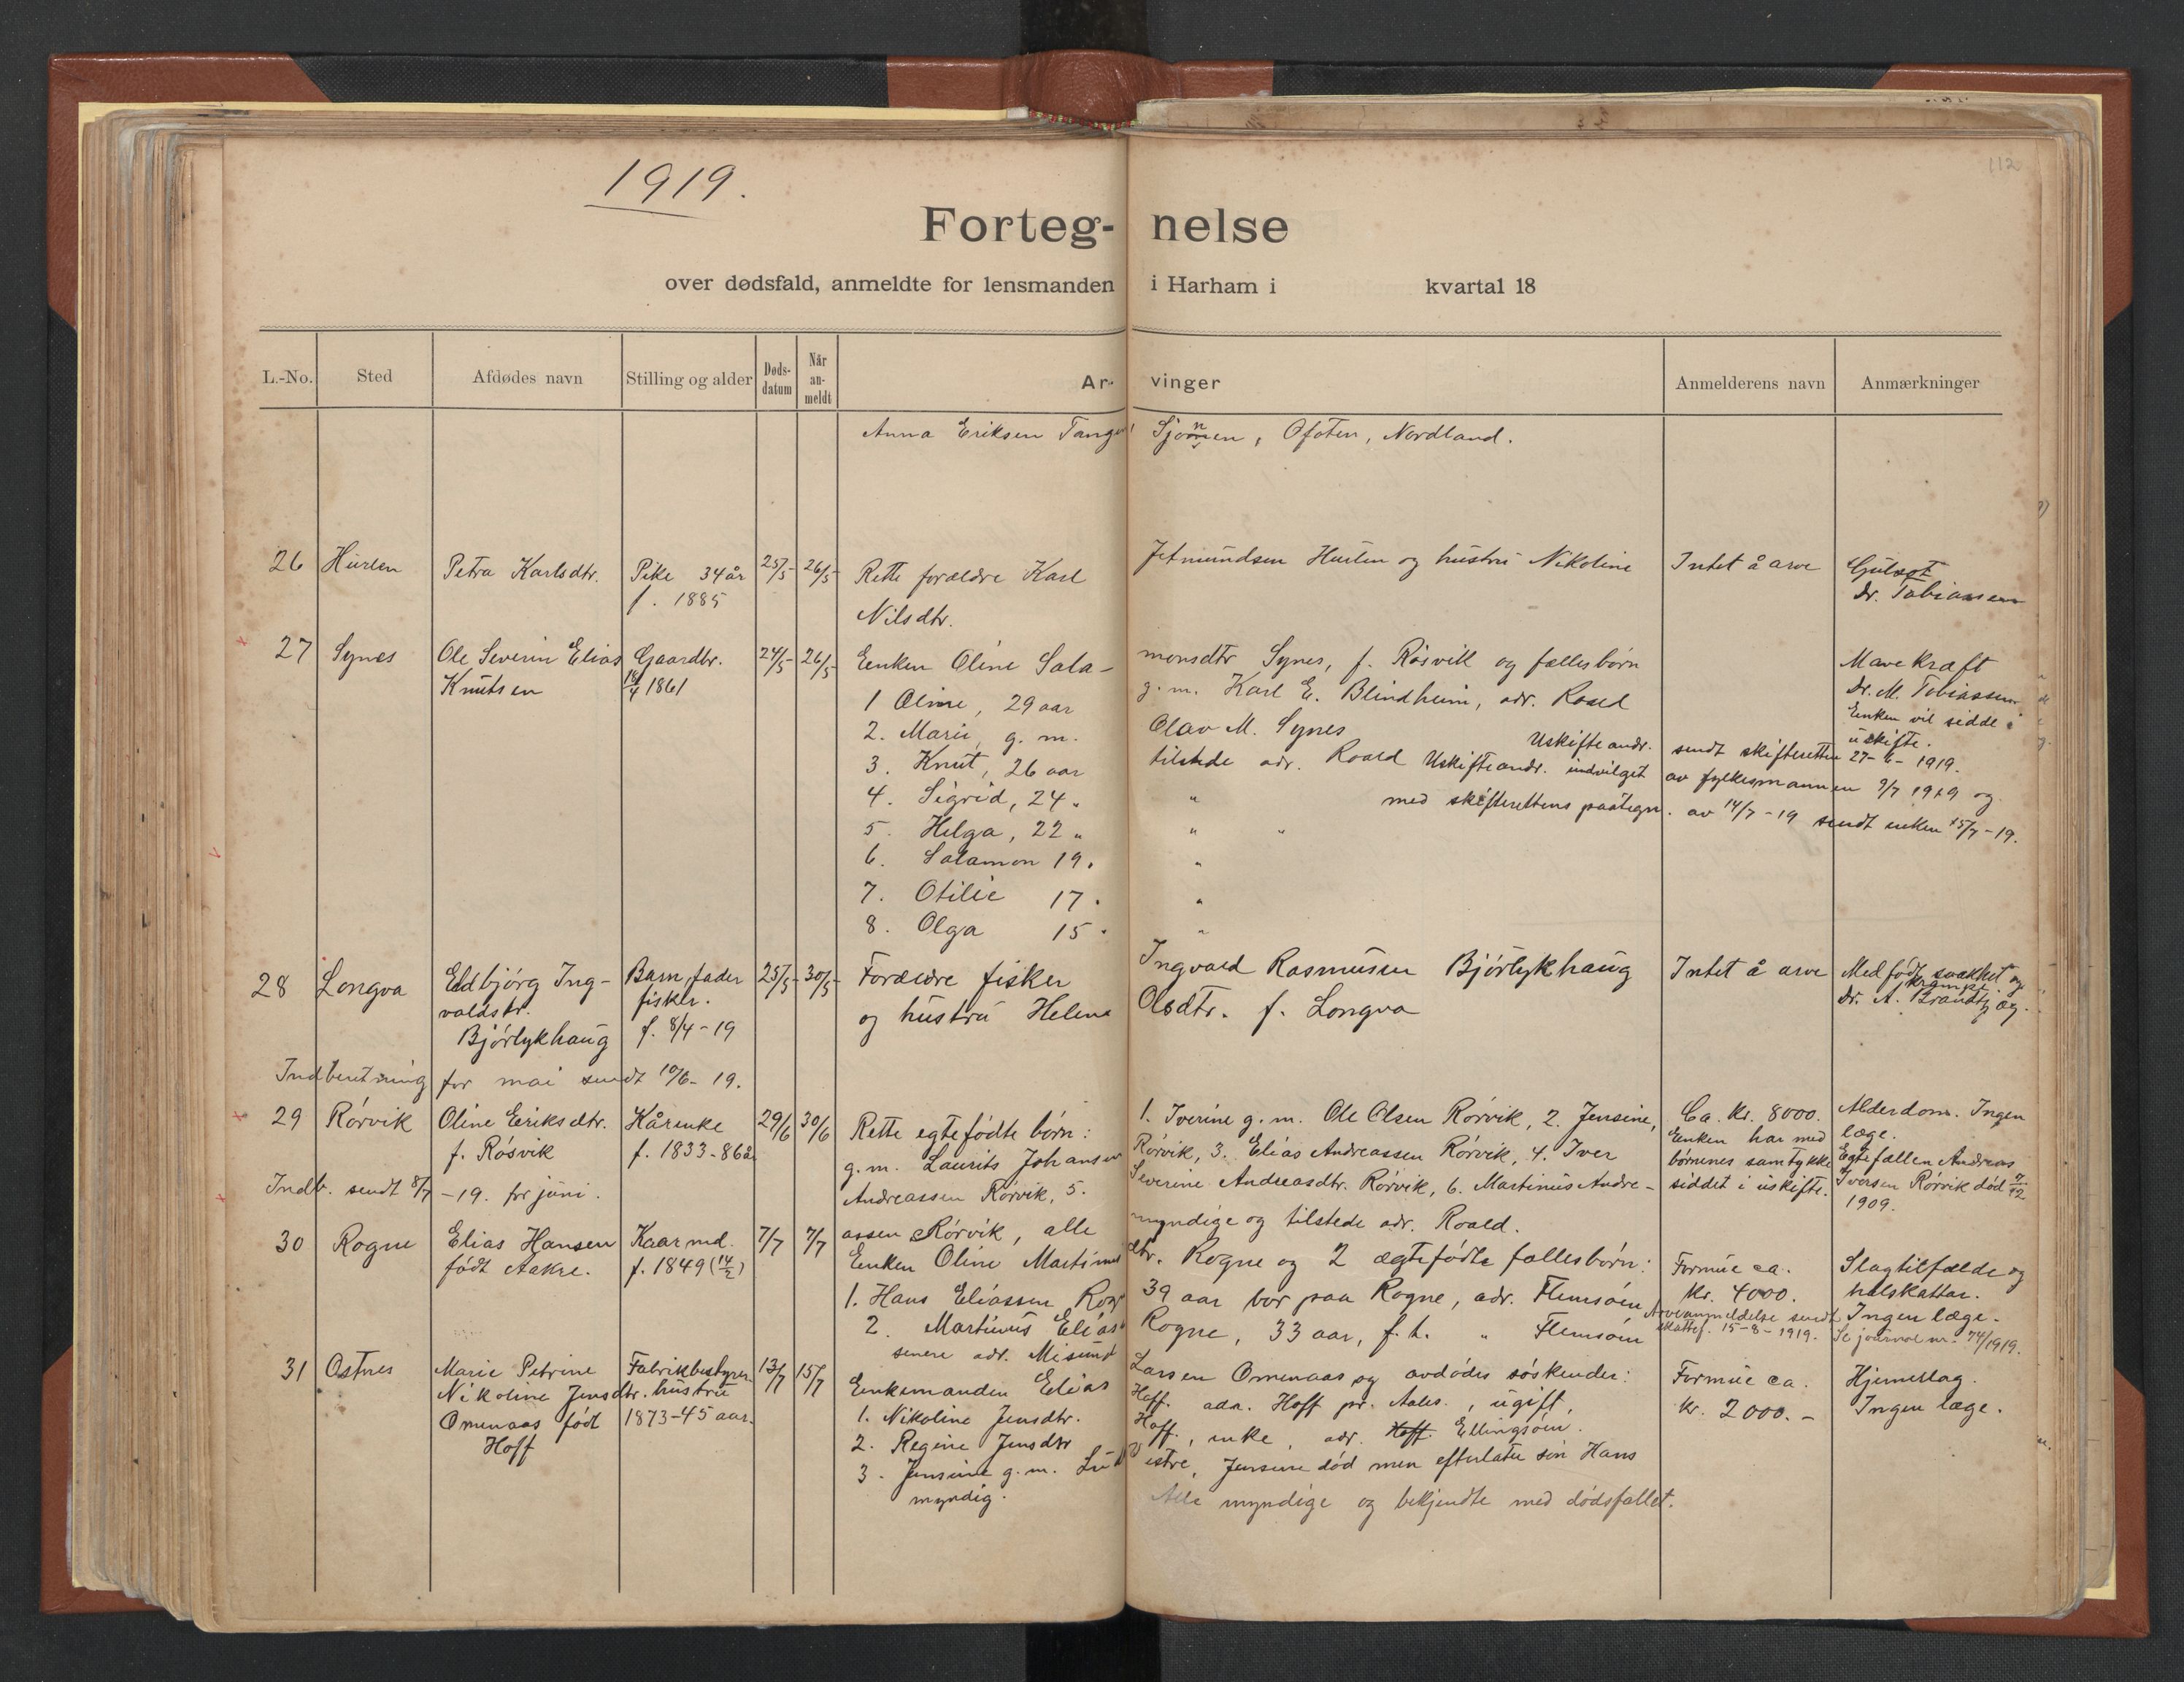 112
1919.
Forteg- nelse
over dødsfald, anmeldte for lensmanden i Harham i kvartal 18
L.-No. Sted Afdødes navn Stilling og alder Døds-datum Når an-meldt Ar- vinger Anmelderens navn Anmærkninger
Anna Eriksen Tange Ofoten, Nordland.
26 Hurlen Petra Karlsdtr. Pike 34 år 25/5 26/5 Rette forældre Karl Jetmundsen Hurlen og hustru Nikoline Intet å arve Gulsot
f. 1885 Nilsdtr. Dr. Tobiassen
27 Synes Ole Severin Elias Gaardbr. 24/5 26/5 Enken Oline Sala- monsdtr Synes, f. Rösvik og fællesbörn Mavekræft
Knutsen 18/4 1861 1 Oline, 29 aar g. m. Karl E. Blindheim, adr. Roald Dr. M. Tobiassen
2. Marie, g. m. Olav M. Synes Enken vil sidde i
uskifte.
Uskifteandr. sendt skifteretten 27-6-1919.
3. Knut, 26 aar tilstede adr. Roald Uskifteandr. indvilget av fylkesmannen 9/7 1919 og
4. Sigrid, 24 " " med skifterettens paategn. av 14/7-19 sendt enken 15/7-19.
5. Helga, 22 " " "
6. Salamon 19 " "
7. Otilie 17 " "
8. Olga 15 " "
28 Longva Eldbjørg Ing- Barn, fader 25/5 30/5 Forældre fisker Ingvald Rasmussen Bjørlykhaug Intet å arve Medfødt svakhet og
krampe.
valdsdtr. fisker. og hustru Helena Olsdtr. f. Longva Dr. A. Brandtzæg.
Bjørlykhaug f. 8/4-19
Indberetning for mai sendt 10/6-19.
29 Rörvik Oline Eriksdtr. Kårenke 29/6 30/6 Rette egtefödte börn: 1. Iverine g. m. Ole Olsen Rörvik, 2. Jensine, Ca. kr. 8000. Alderdom. Ingen
f. Rösvik f. 1833-86 år g. m. Laurits Johansen Rörvik, 3. Elias Andreassen Rörvik, 4. Iver Enken har med læge.
børnenes samtykke Egtefællen Andreas
Indb. sendt 8/7-19. for juni. Andreassen Rörvik, 5. Severine Andreasdtr. Rörvik, 6. Martinus Andre- siddet i uskifte. Iversen Rörvik död 7/12
assen Rörvik, alle myndige og tilstede adr. Roald. 1909.
30 Rogne Elias Hansen Kaarmd. 7/7 7/7 Enken Oline Martinus dtr. Rogne og 2 ægtefödte fællesbörn: Formue ca. Slagtilfælde og
født Aakre. f. 1849 (14/2) 1. Hans Eliassen Rogne 39 aar bor paa Rogne, adr. Flemsöen kr. 4000. halskattar.
Arveanmeldelse sendt Ingen læge.
2. Martinus Elias Rogne, 33 aar, f. t. " Flemsöen skattef. 15-8-1919. Se journal nr. 74/1919.
senere adr. Misund
31 Östnes Marie Petrine Fabrikbestyrer- 13/7 15/7 Enkemanden Elias Larsen Omenaas og avdödes söskender: Formue ca. Hjerneslag.
Nikoline Jensdtr. hustru 1. Nikoline Jensdtr. Hoff. adr. Hoff pr. Aales., ugift, kr. 2000.- Ingen læge.
Omenaas født 1873-45 aar. 2. Regine Jensdtr Hoff, enke, adr. Hoff. Ellingsöen.
Hoff 3. Jensine g. m. Vestre, Jensine död men efterlater sön Hans
myndig. Alle myndige og bekjendte med dödsfallet.